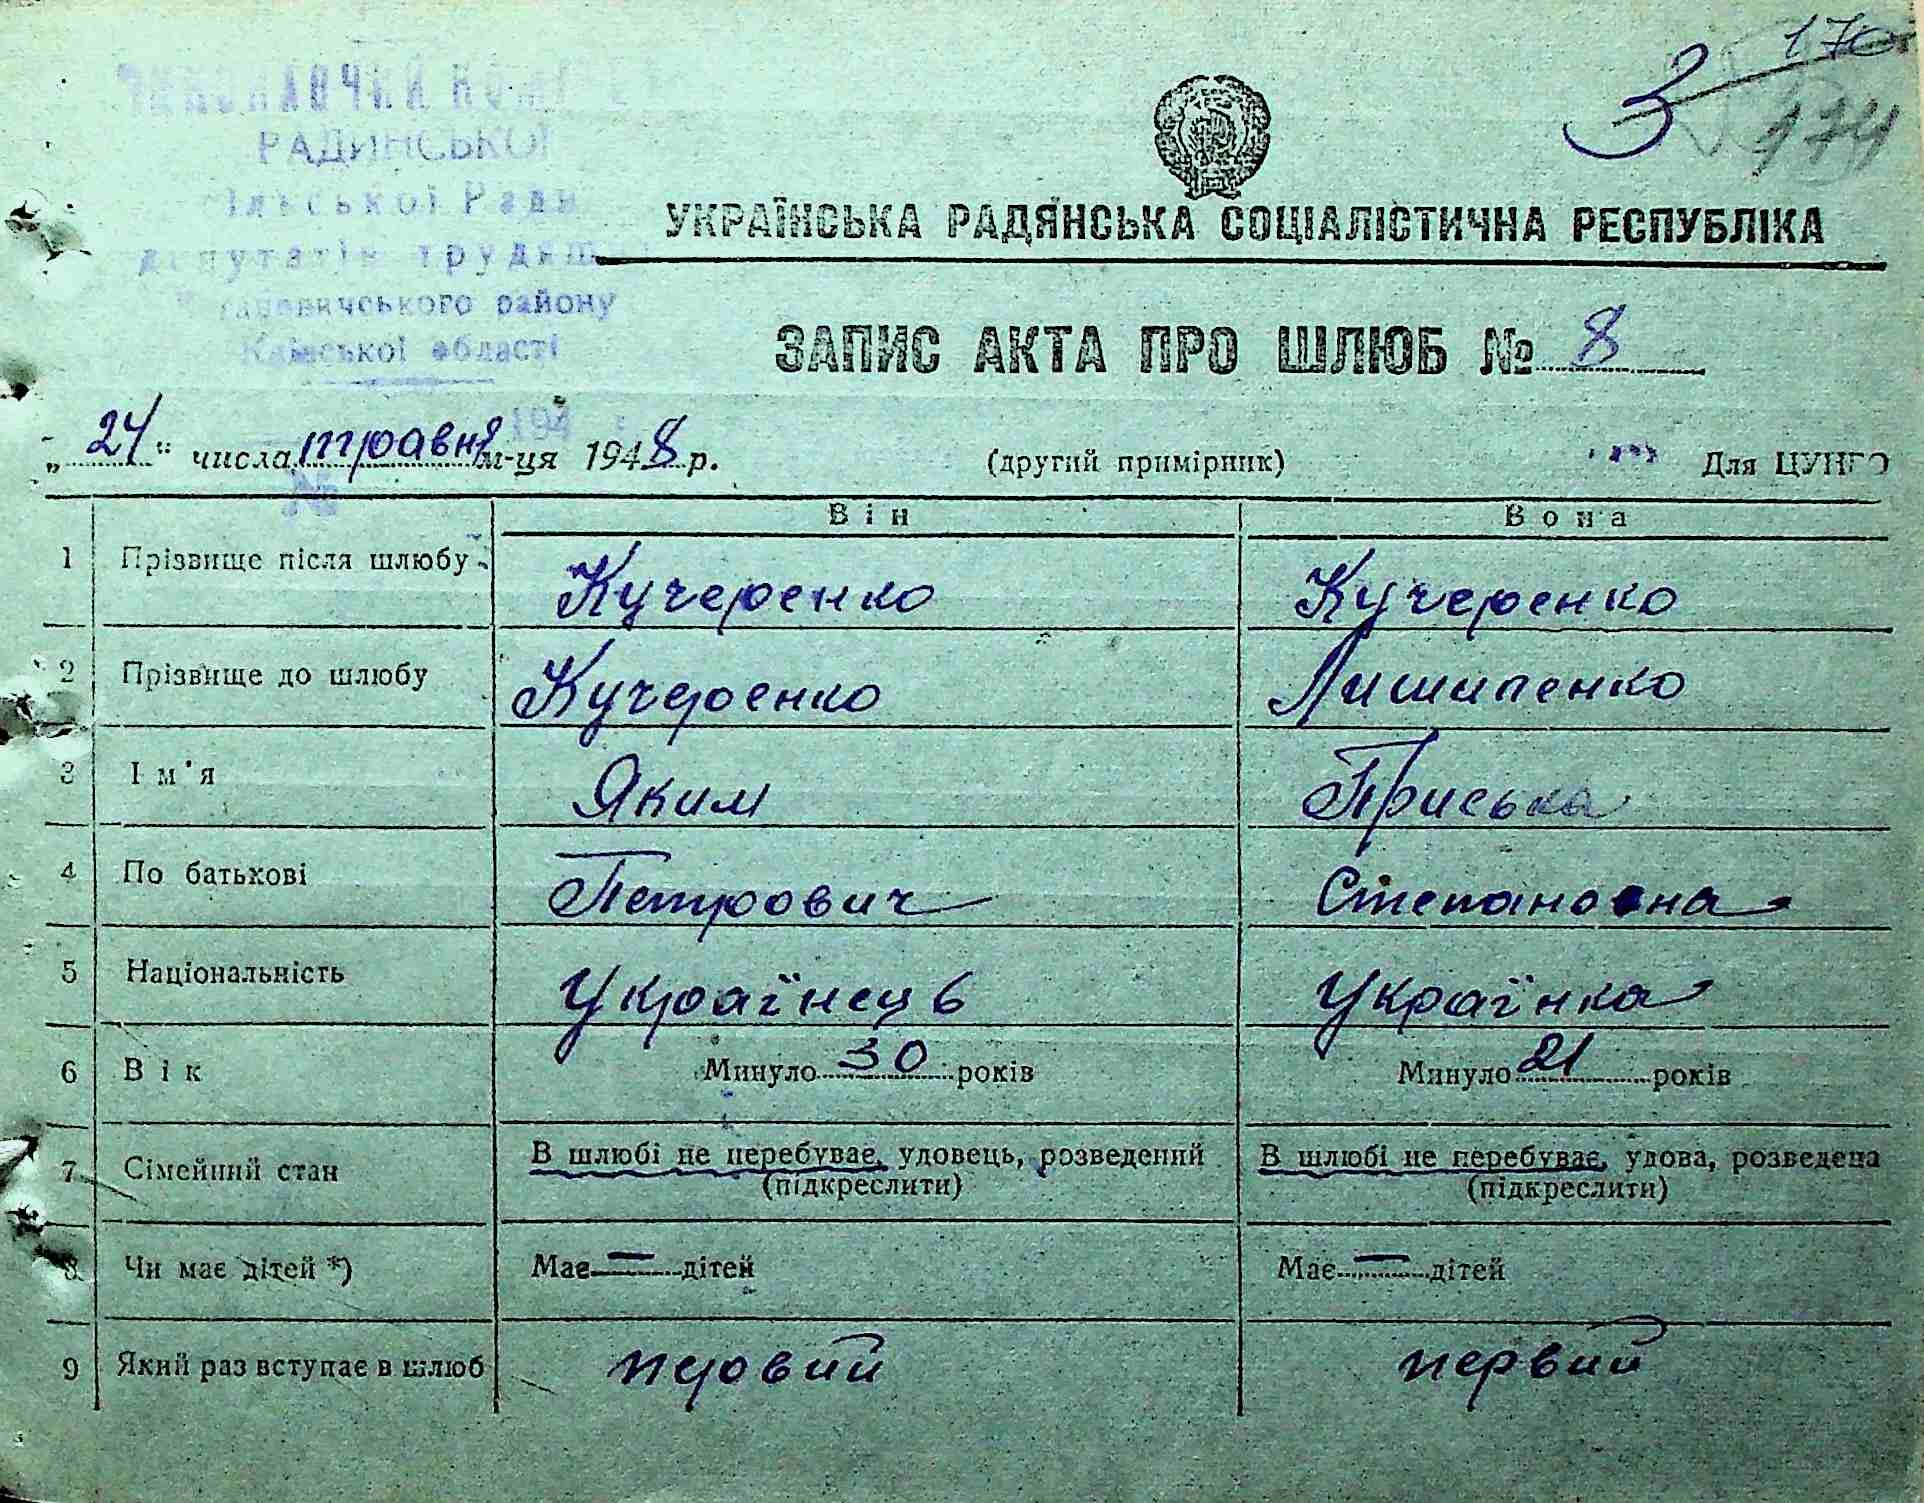 170
3
174
РАДИНСЬКОЇ
сільської Ради
депутатів трудящ
району
Київської області
194
№
УКРАЇНСЬКА РАДЯНСЬКА СОЦІАЛІСТИЧНА РЕСПУБЛІКА
ЗАПИС АКТА ПРО ШЛЮБ № 8
„ 24 “ числа травня м-ця 1948 р. (другий примірник) Для ЦУНГО
Він Вона
1 Прізвище після шлюбу Кучеренко Кучеренко
2 Прізвище до шлюбу Кучеренко Лишипенко
3 Ім'я Яким Приська
4 По батькові Петрович Степановна
5 Національність Українець Українка
6 Вік Минуло 30 років Минуло 21 років
7 Сімейний стан В шлюбі не перебуває, удовець, розведений В шлюбі не перебуває, удова, розведена
(підкреслити) (підкреслити)
8 Чи має дітей *) Має — дітей Має — дітей
9 Який раз вступає в шлюб первий первий